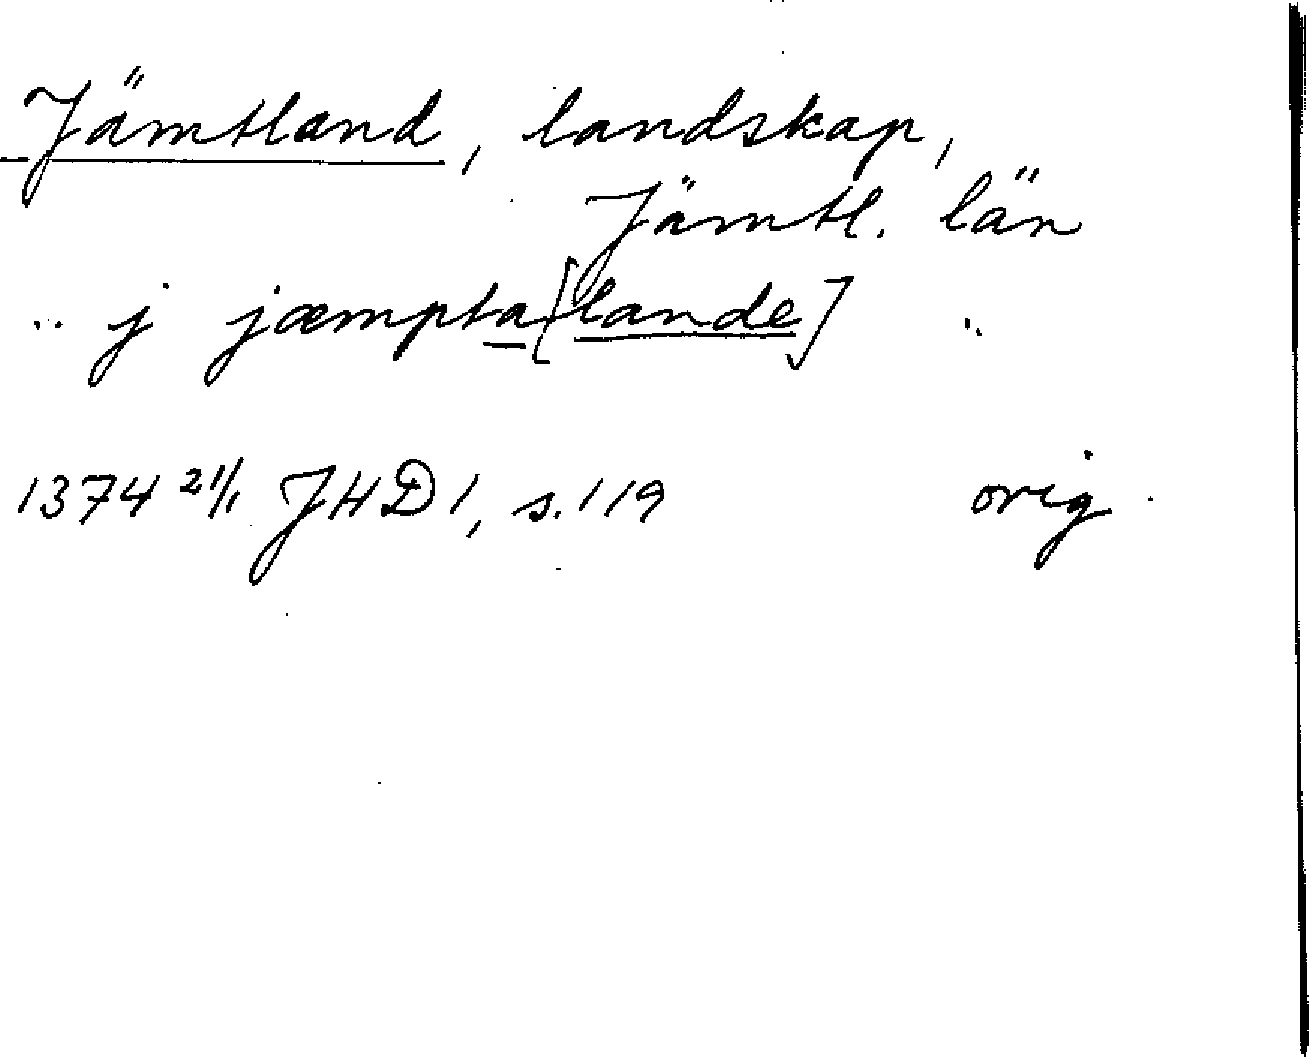 Jämtland, landskap,
Jämtl. län
.. j jæmpta[lande] ..
1374 21/1 JHD 1, s. 119 orig.